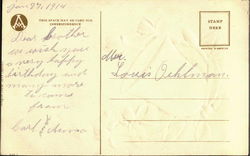 Jan 27, 1914
THIS SPACE MAY BE USED FOR
CORRESPONDENCE
STAMP
HERE
Dear Brother
we wish you
a very happy
birthday and
many more
to come
from
Carl &
Louis Oehlman.